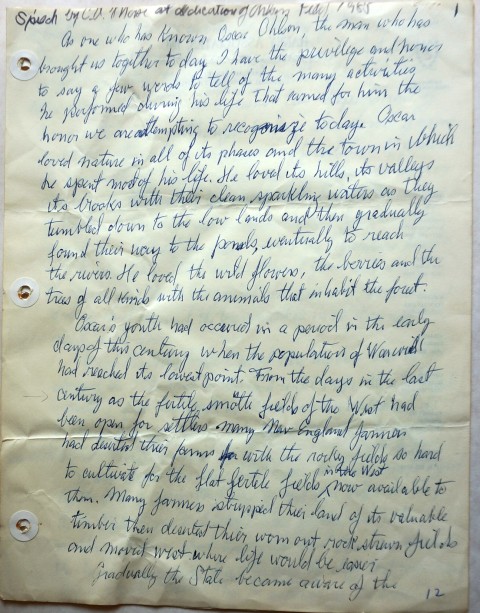 Speech by W. D. Moore at dedication of Ohlson Field 1985
1
As one who has known Oscar Ohlson, the man who has
brought us together today I have the privilege and honor
to say a few words to tell of the many activities
he performed during his life that earned for him the
honor we are attempting to recognize today. Oscar
loved nature in all of its phases and the town in which
he spent most of his life. He loved its hills, its valleys
its brooks with their clean sparkling waters as they
tumbled down to the low lands and then gradually
found their way to the ponds, eventually to reach
the rivers. He loved the wild flowers, the berries and the
trees of all kinds with the animals that inhabit the forest.
Oscar's youth had occurred in a period in the early
days of this century when the population of Warwick
had reached its lowest point. From the days in the last
century as the fertile, smooth fields of the West had
been open for settlers many New England farmers
had deserted their farms with the rocky fields so hard
to cultivate for the flat fertile fields in the West now available to
them. Many farmers stripped their land of its valuable
timber then deserted their worn out rock strewn fields
and moved west where life would be easier
Gradually the State became aware of the
12